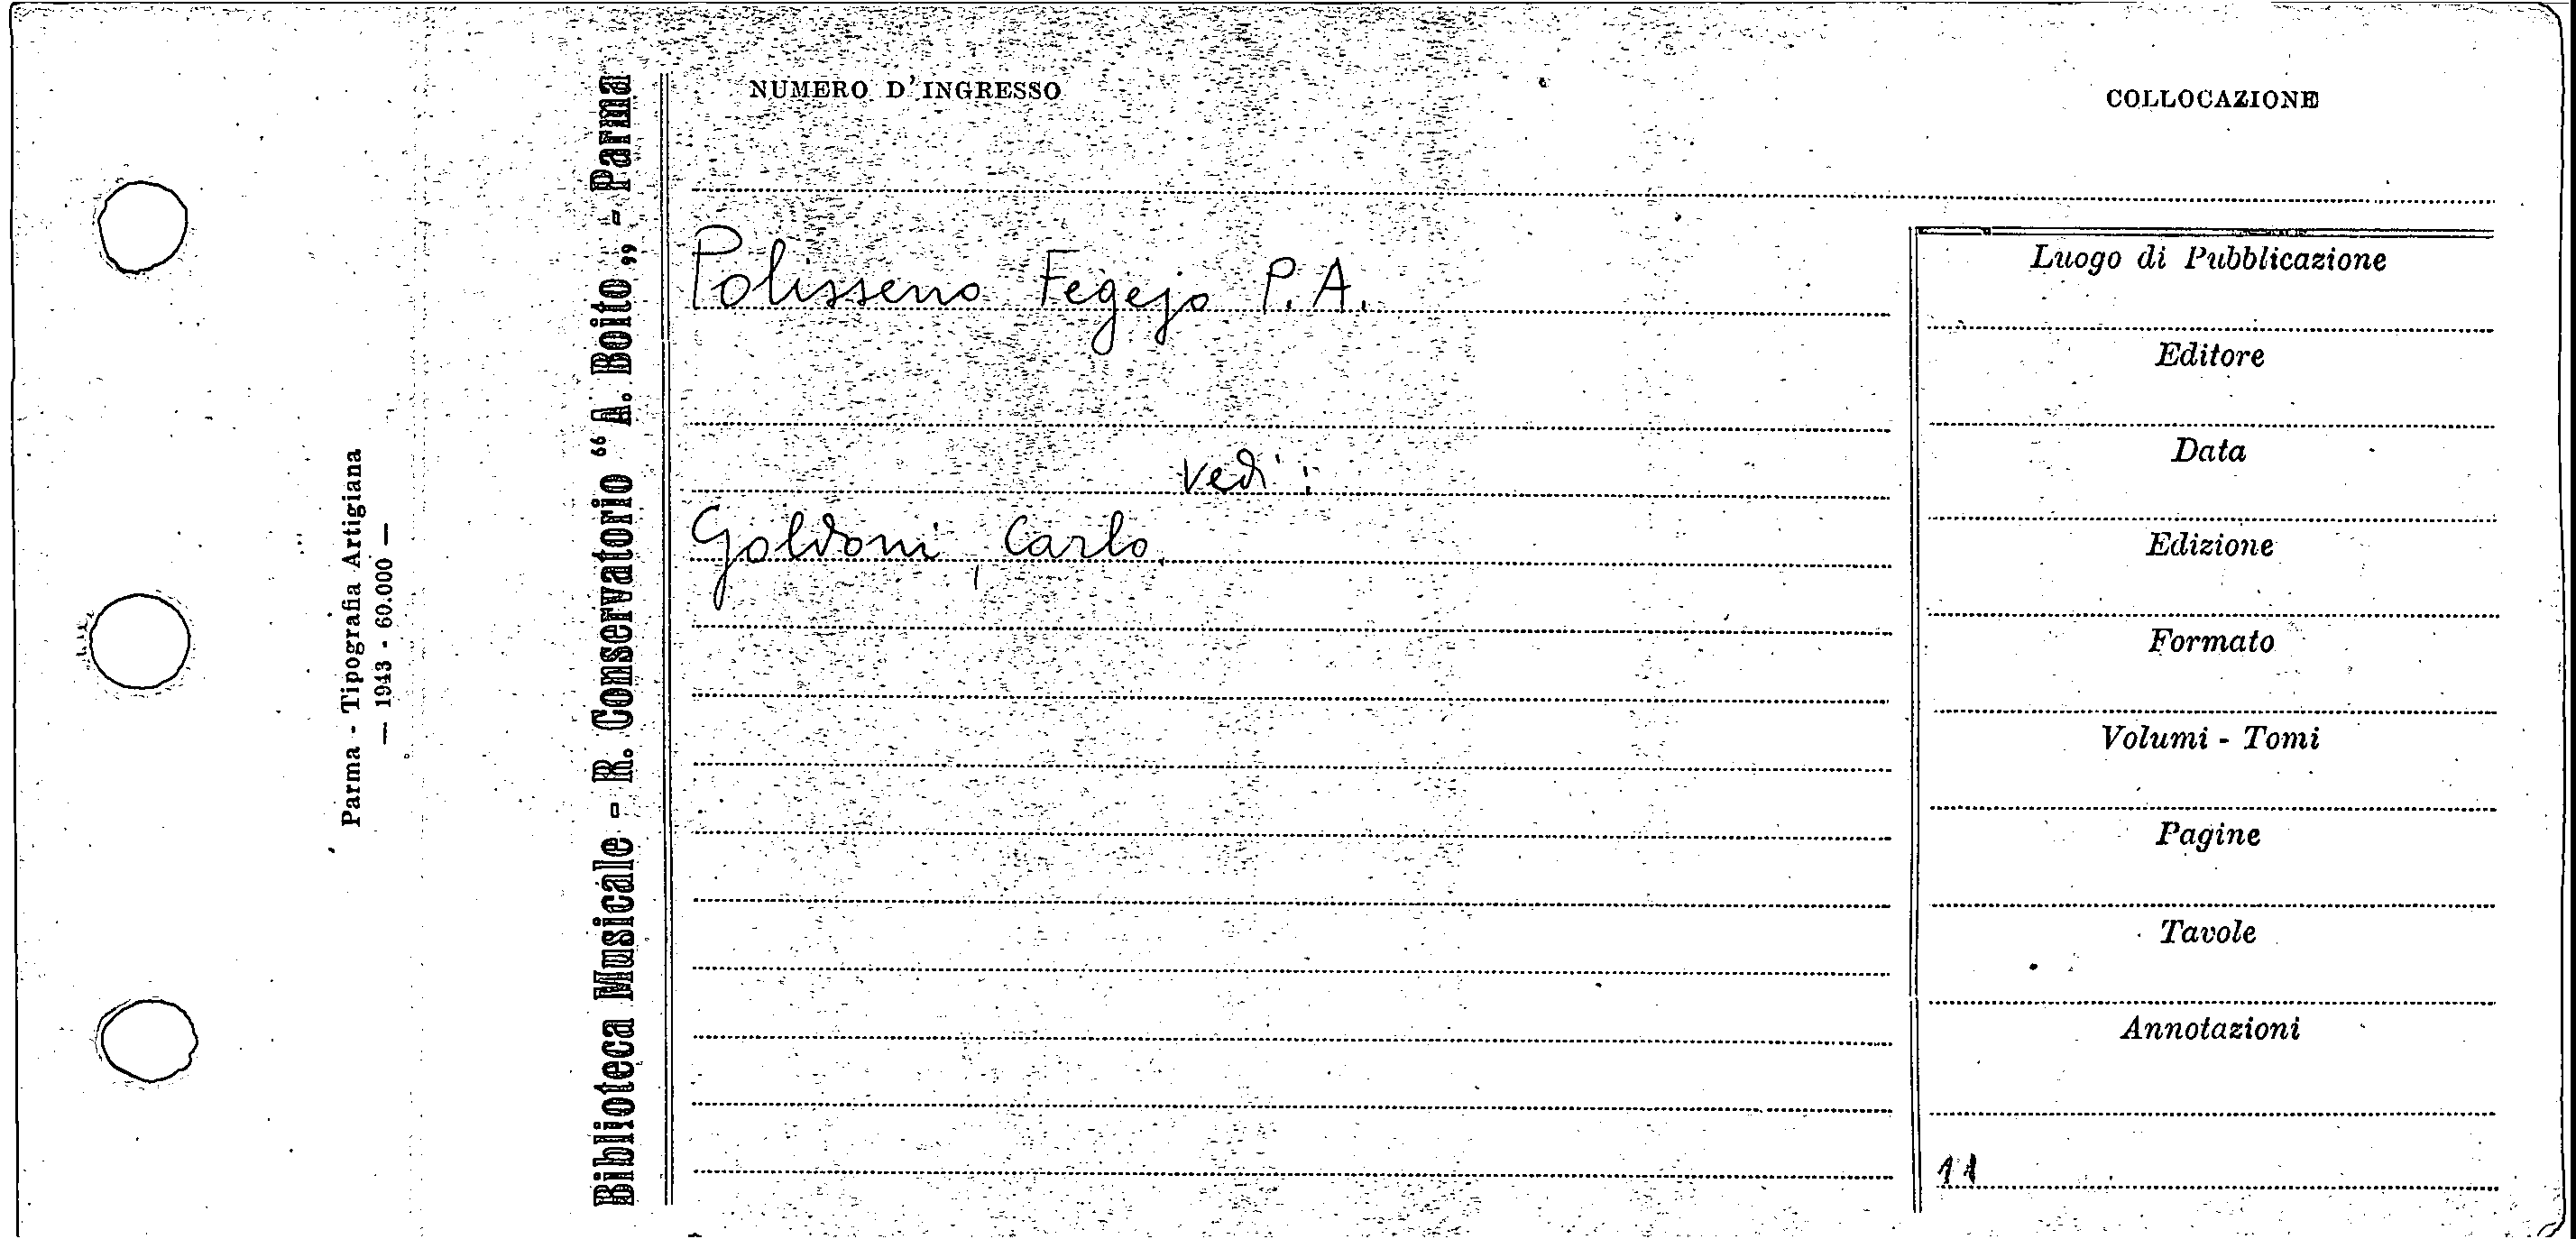 Parma - Tipografia Artigiana
— 1943 - 60.000 —
Biblioteca Musicale - R. Conservatorio “ A. Boito „ - Parma
NUMERO D'INGRESSO
COLLOCAZIONE
Polisseno Fegejo P.A.
vedi:
Goldoni, Carlo
Luogo di Pubblicazione
Editore
Data
Edizione
Formato
Volumi - Tomi
Pagine
Tavole
Annotazioni
11